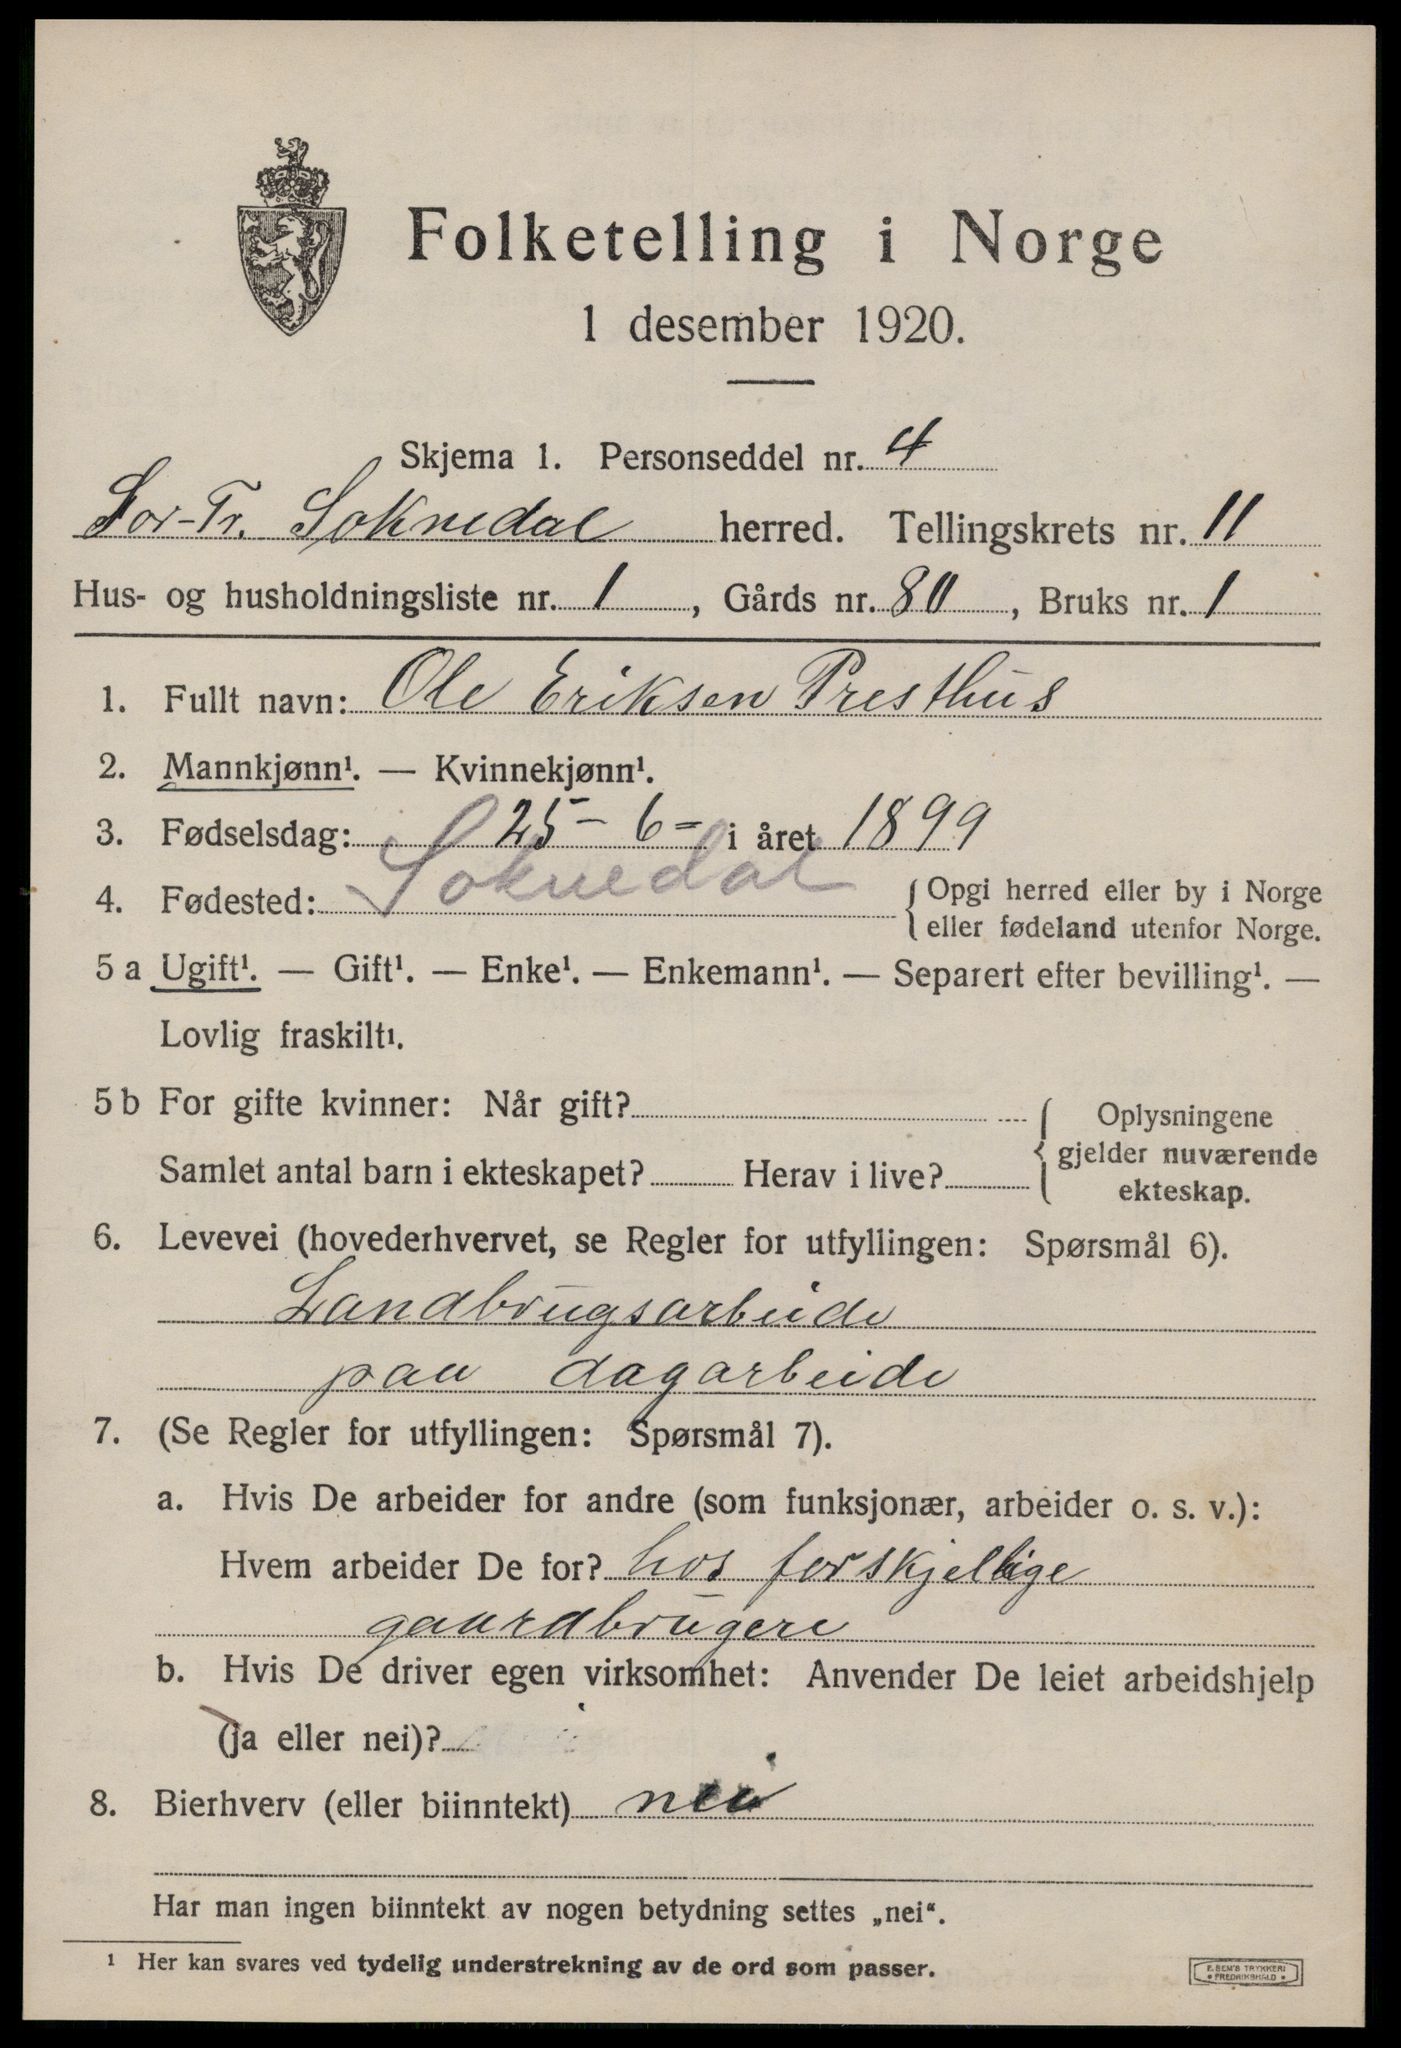 Folketelling i Norge
1 desember 1920.
Skjema 1. Personseddel nr. 4
Sør-Tr. Soknedal herred. Tellingskrets nr. 11
Hus- og husholdningsliste nr. 1, Gårds nr. 80, Bruks nr. 1
1. Fullt navn: Ole Eriksen Presthus
2. Mannkjønn¹. — Kvinnekjønn¹.
3. Fødselsdag: 25 - 6 - i året 1899
4. Fødested: Soknedal { Opgi herred eller by i Norge
eller fødeland utenfor Norge.
5 a Ugift¹. — Gift¹. — Enke¹. — Enkemann¹. — Separert efter bevilling¹. —
Lovlig fraskilt¹.
5 b For gifte kvinner: Når gift? { Oplysningene
gjelder nuværende
Samlet antal barn i ekteskapet? Herav i live?
ekteskap.
6. Levevei (hovederhvervet, se Regler for utfyllingen: Spørsmål 6).
Landbrugsarbeide
paa dagarbeide
7. (Se Regler for utfyllingen: Spørsmål 7).
a. Hvis De arbeider for andre (som funksjonær, arbeider o. s. v.):
Hvem arbeider De for? hos forskjellige
gaardbrugere
b. Hvis De driver egen virksomhet: Anvender De leiet arbeidshjelp
(ja eller nei)?
8. Bierhverv (eller biinntekt) nei
Har man ingen biinntekt av nogen betydning settes „nei“.
¹ Her kan svares ved tydelig understrekning av de ord som passer.
E. SEM'S TRYKKERI
• FREDRIKSHALD •